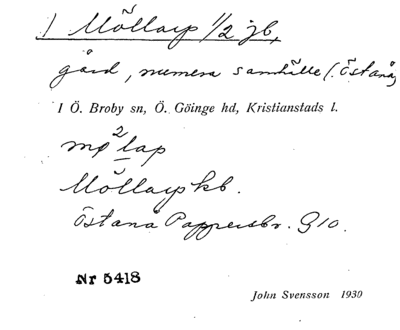 1) Möllarp 1/2 jb,
gård, numera samhälle (: Östanå)
I Ö. Broby sn, Ö. Göinge hd, Kristianstads l.
mø²lap
Möllarp kb.
Östanå Pappersbr. G 10.
Nr 5418
John Svensson 1930